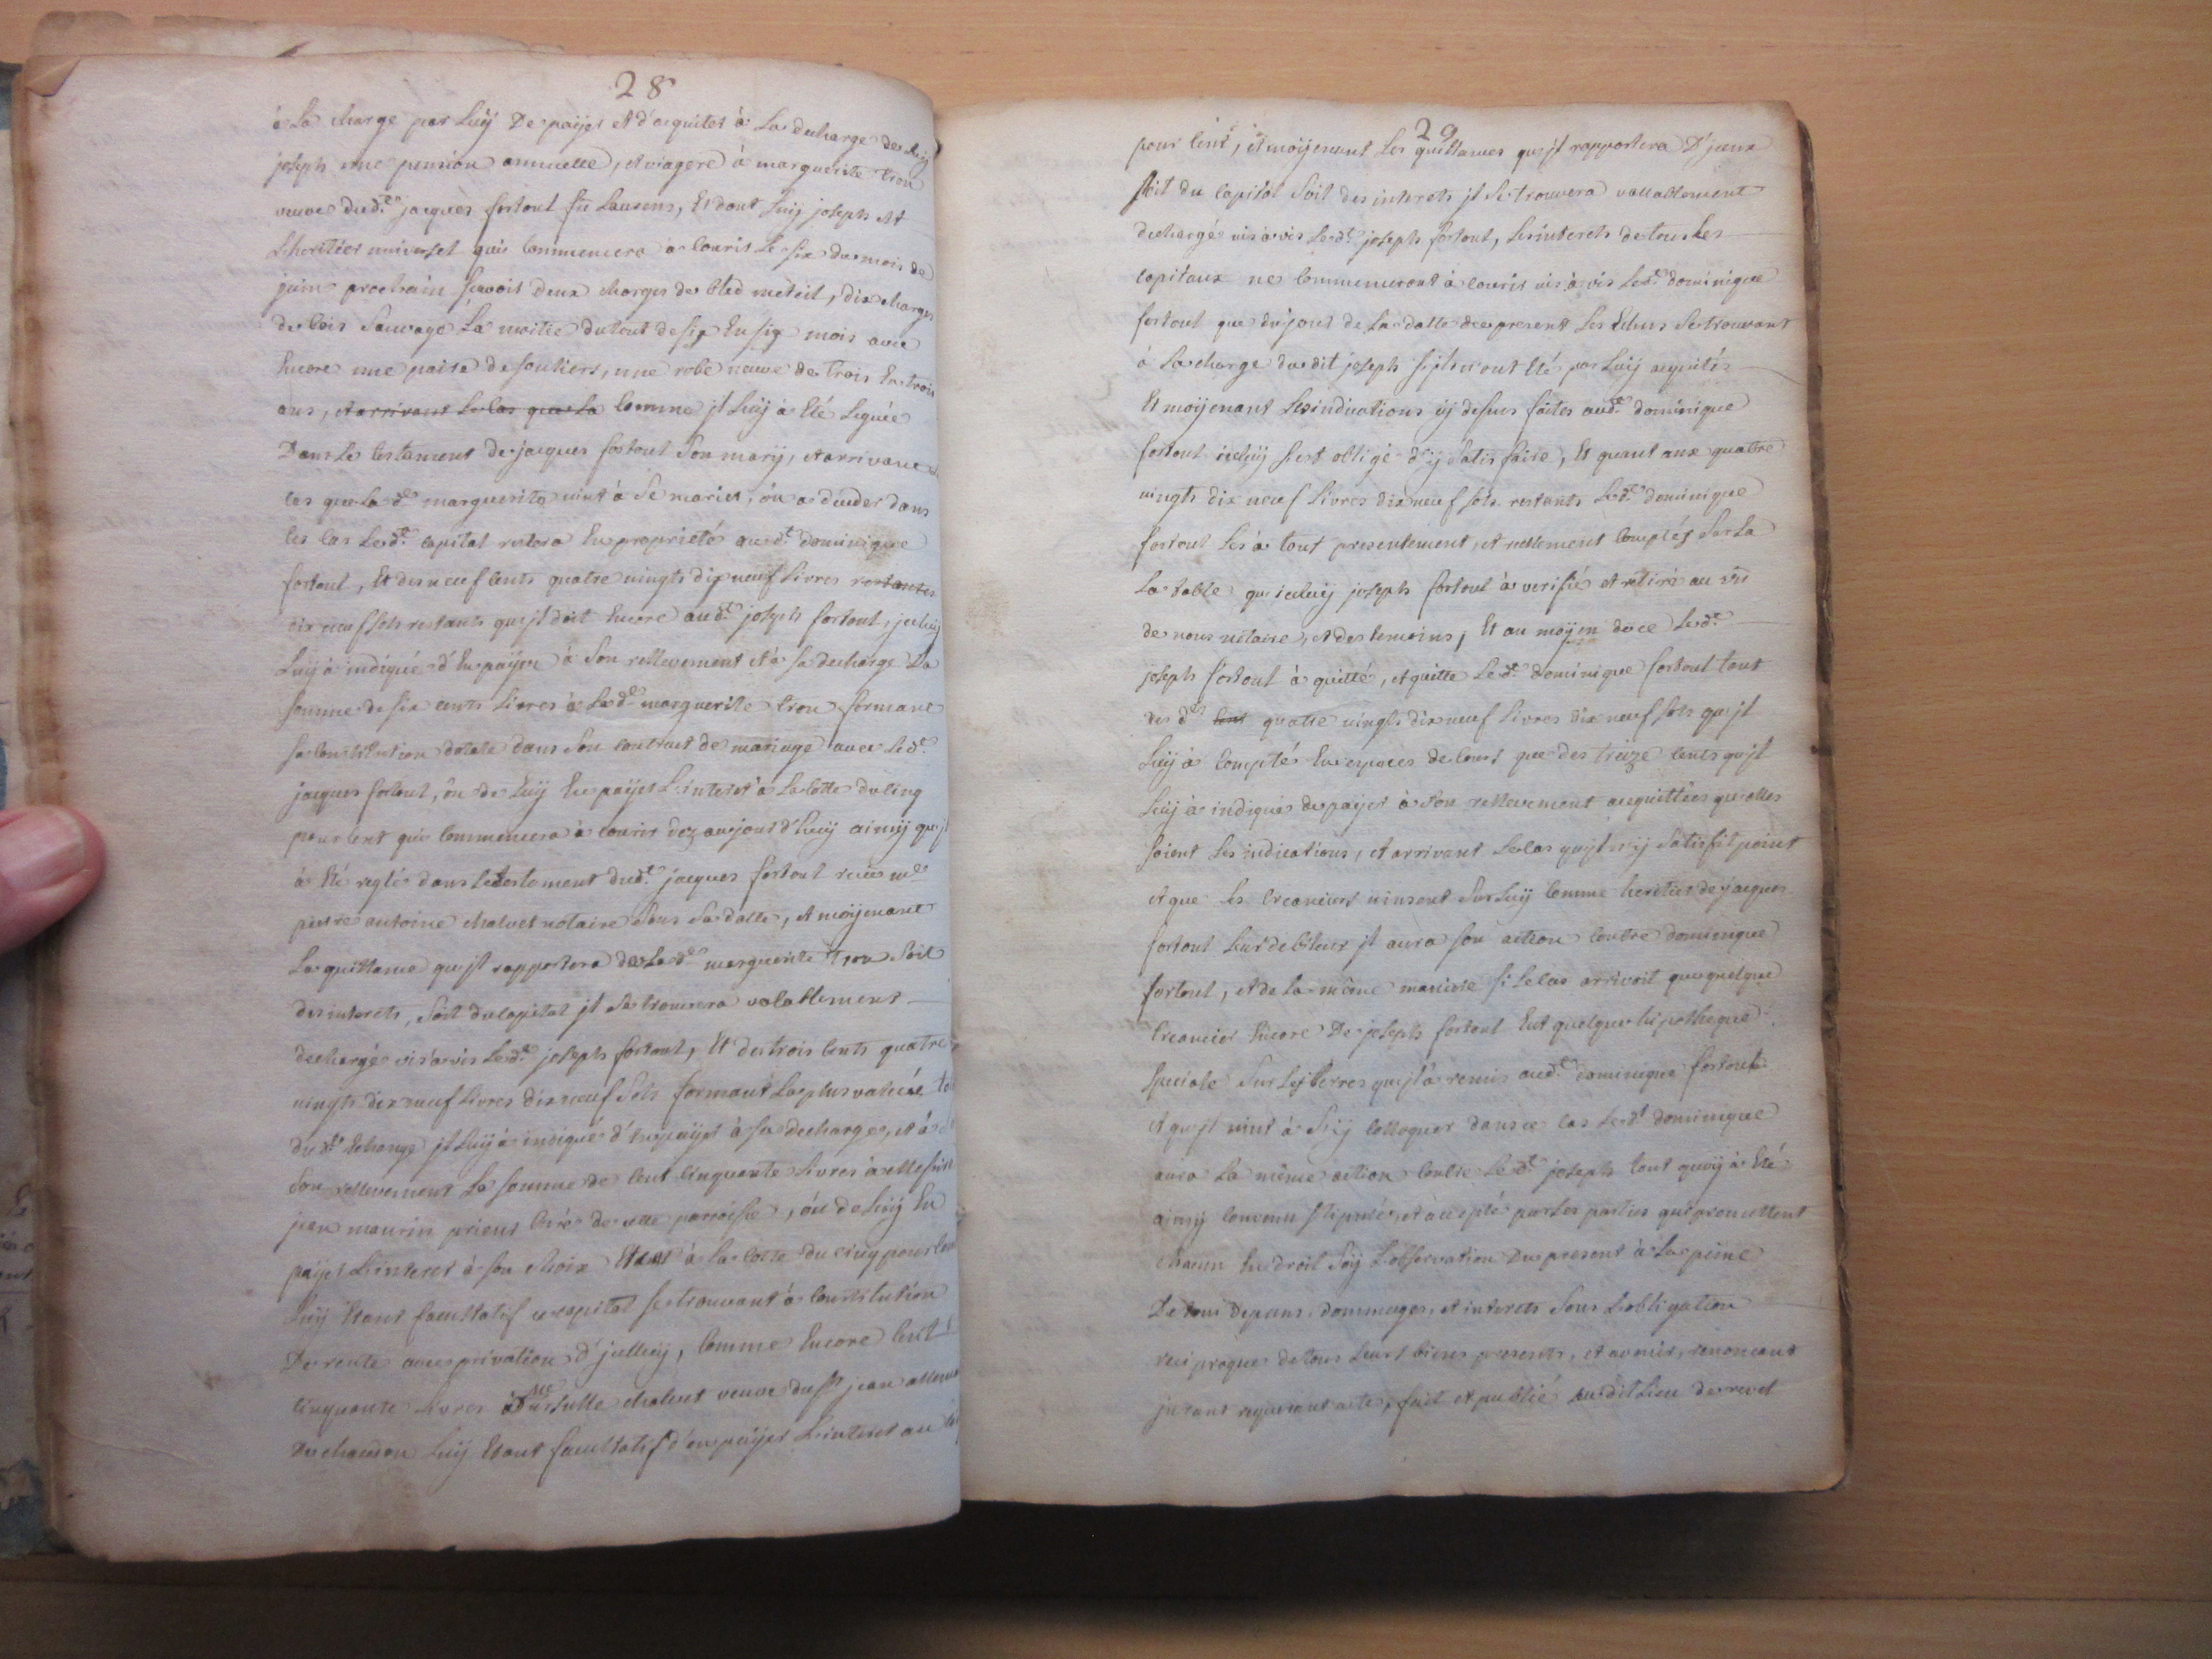 28
à La charge par Luÿ De païjer et d'acquiter à La decharge de Luij
joseph une pension annuelle, et viagere à marguerite trou
veuve dud.t jacques fortoul fu Laurens, Et dont Luij joseph est
Lheritier universel qui Commencera à Courir Le six du mois de
juin prochain scavoir deux charges de bled meteil, dix charges
de bois Sauvage La moitié du tout de six En six mois avec
Encore une paire de souliers, une robe neuve de trois En trois
ans, et arrivant Le Cas que La Comme jl Luij à Eté Leguée
Dans Le testament de jacques fortoul Son marij, et arrivant Le
Cas que La d.e marguerite vint à Se marier, ôu a deceder dans
Ces Cas Led.t Capital restera En proprieté aud.t dominique
fortoul, Et des neuf Cents quatre vingts dix neuf Livres restantes
dix neuf sols restants qu'jl doit Encore aud.t joseph fortoul, jceluij
Luij à indiqué d'En païjer à Son rellevement et à sa decharge La
somme de six cents Livres à La d.e marguerite trou formant
sa Constitution dotale dans Son Contract de mariage avec Led.t
jacques fortoul, ôu de Luij En païjer L'interet à La Cotte du Cinq
pour Cent qui Commencera à Courir dez aujourd'huij ainsij qu'jl
à Eté reglé dans Le testament dud.t jacques fortoul receu m.e
pierre antoine chalvet notaire Sous Sa datte, et moijenant
La quittance qu'jl rapportera de La d.e marguerite trou Soit
des interets, Soit du Capital jl Se trouvera valablement
dechargé vis à vis Led.t joseph fortoul, Et des trois Cents quatre
vingts dix neuf Livres dix neuf Sols formant La plus vallüe
dud.t Echange jl Luij à indiqué d'En païjer à sa decharge, et à
Son rellevement La somme de Cent Cinquante Livres à Messire
jean maurin prieur Curé de cette parroisse, ôu de Luij En
païjer L'interet à son choix Et à La Cotte du Cinq pour Cent
Luij Etant facultatif ce capital se trouvant à Constitution
De rente avec privation d'jcelluij, Comme Encore Cent
Cinquante Livres à D.lle ursulle chalvet veuve du s.r jean
Luij Etant facultatif d'en païjer L'interet au
29
pour Cent, Et moijenant Les quittances qu'jl rapportera D'jceux
soit du Capital Soit des interets jl Se trouvera vallablement
dechargé vis à vis Led.t joseph fortoul, Les interets de tous Les
Capitaux ne Commenceront à Courir vis à vis Led.t dominique
fortoul que du jour de La datte du present Les Echus Se trouvant
à La charge du dit joseph s'jls n'ont Eté par Luij acquités
Et moijenant Les indications cij dessus faites aud.t dominique
fortoul icelluij s'est obligé d'ij Satisfaire, Et quant aux quatre
vingts dix neuf Livres dix neuf sols restants Led.t dominique
fortoul Les à tout presentement, et reellement Comptés Sur La
La table qu'icelluij joseph fortoul à verifié et retiré au vû
de nous notaire, et des temoins, Et au moijen de ce Led.t
joseph fortoul à quitté, et quitte Led.t dominique fortoul tout
des d.tes cent quatre vingts dix neuf Livres dix neuf sols qu'jl
Luij à Compté En especes de Cours que des treize Cents qu'jl
Luij à indiqués de païjer à Son rellevement acquittées qu'elles
soient Les indications, et arrivant Le Cas qu'jl n'ij Satisfit point
et que Les Creanciers vinsent Sur Luij Comme heritier de jacques
fortoul Leur debiteur jl aura son action Contre dominique
fortoul, et de La même maniere si Le Cas arrivoit que quelque
Creancier Encore De joseph fortoul Eut quelque hipotheque
speciale Sur Les terres qu'jl à remis aud.t dominique fortoul
et qu'jl vint à S'ij Colloquer dans ce Cas Led.t dominique
aura La même action Contre Led.t joseph tout quoij à Eté
ainsij Convenu stipulé, et accepté par Les parties qui promettent
chacun En droit Soij L'observation Du present à La peine
De tous Depens, dommages, et interets Sous L'obligation
reciproque de tous Leurs biens presents, et avenirs, renoncant
jurant requerant acte, fait et publié audit Lieu de revel